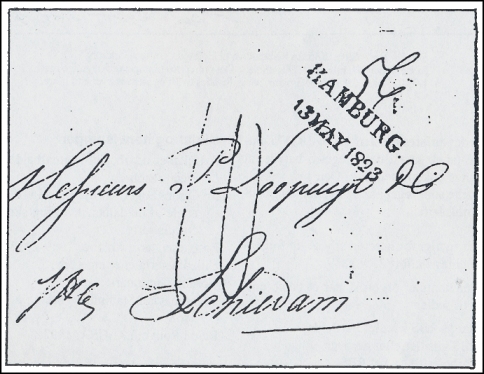 HAMBURG.
13 MAY 1823
Messieurs P. Loopuyt & C
Schiedam